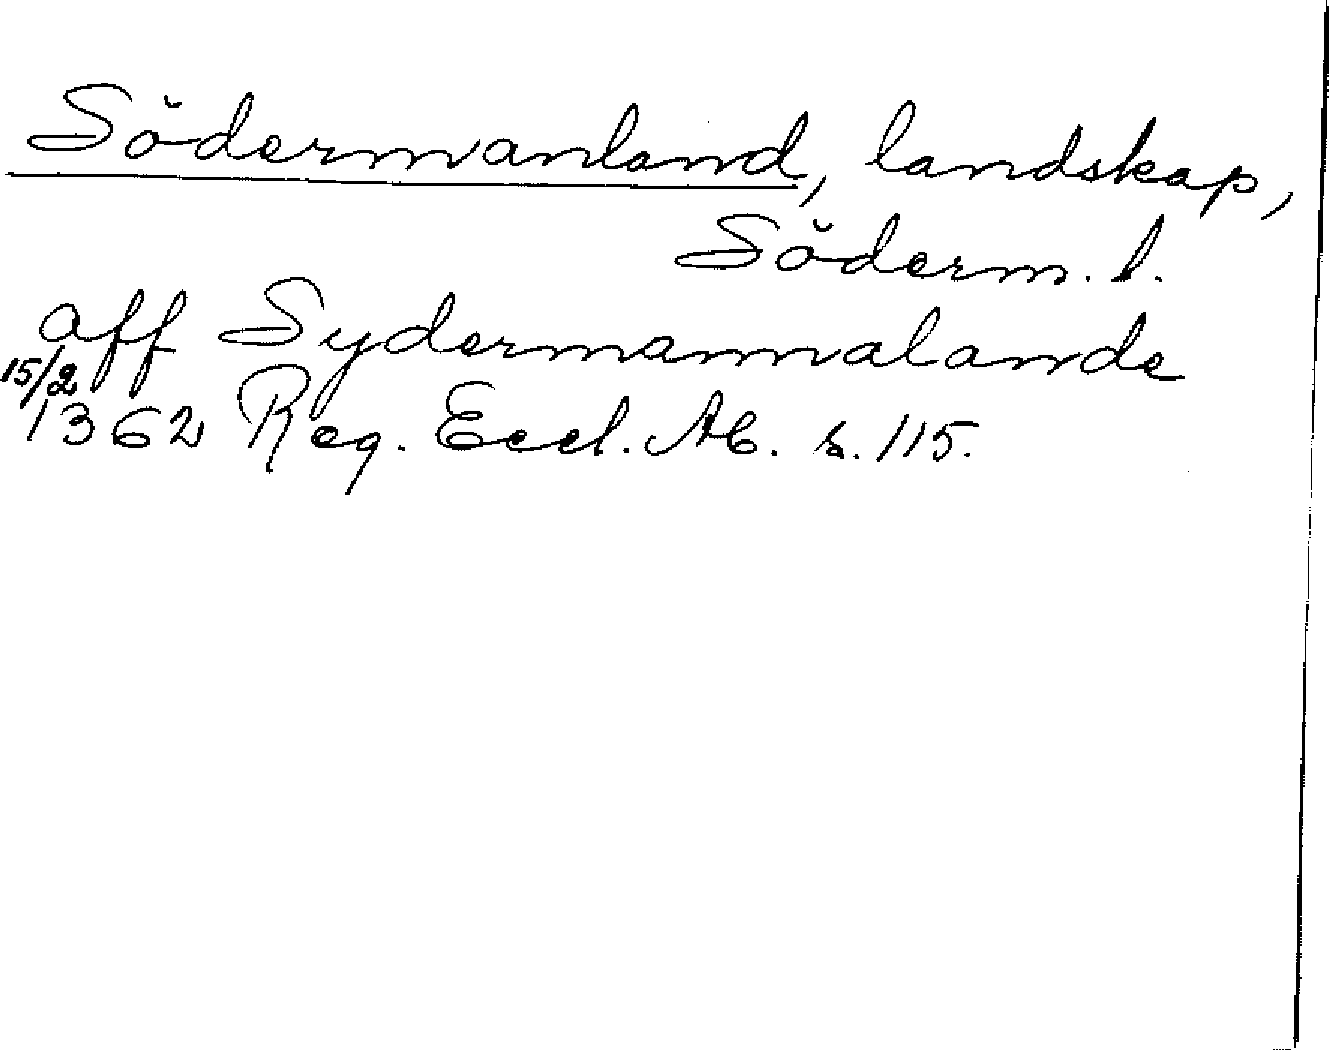 Södermanland, landskap,
Söderm. l.
aff Sydermannalande
15/2
1362 Reg. Eccl. Ab. s. 115.